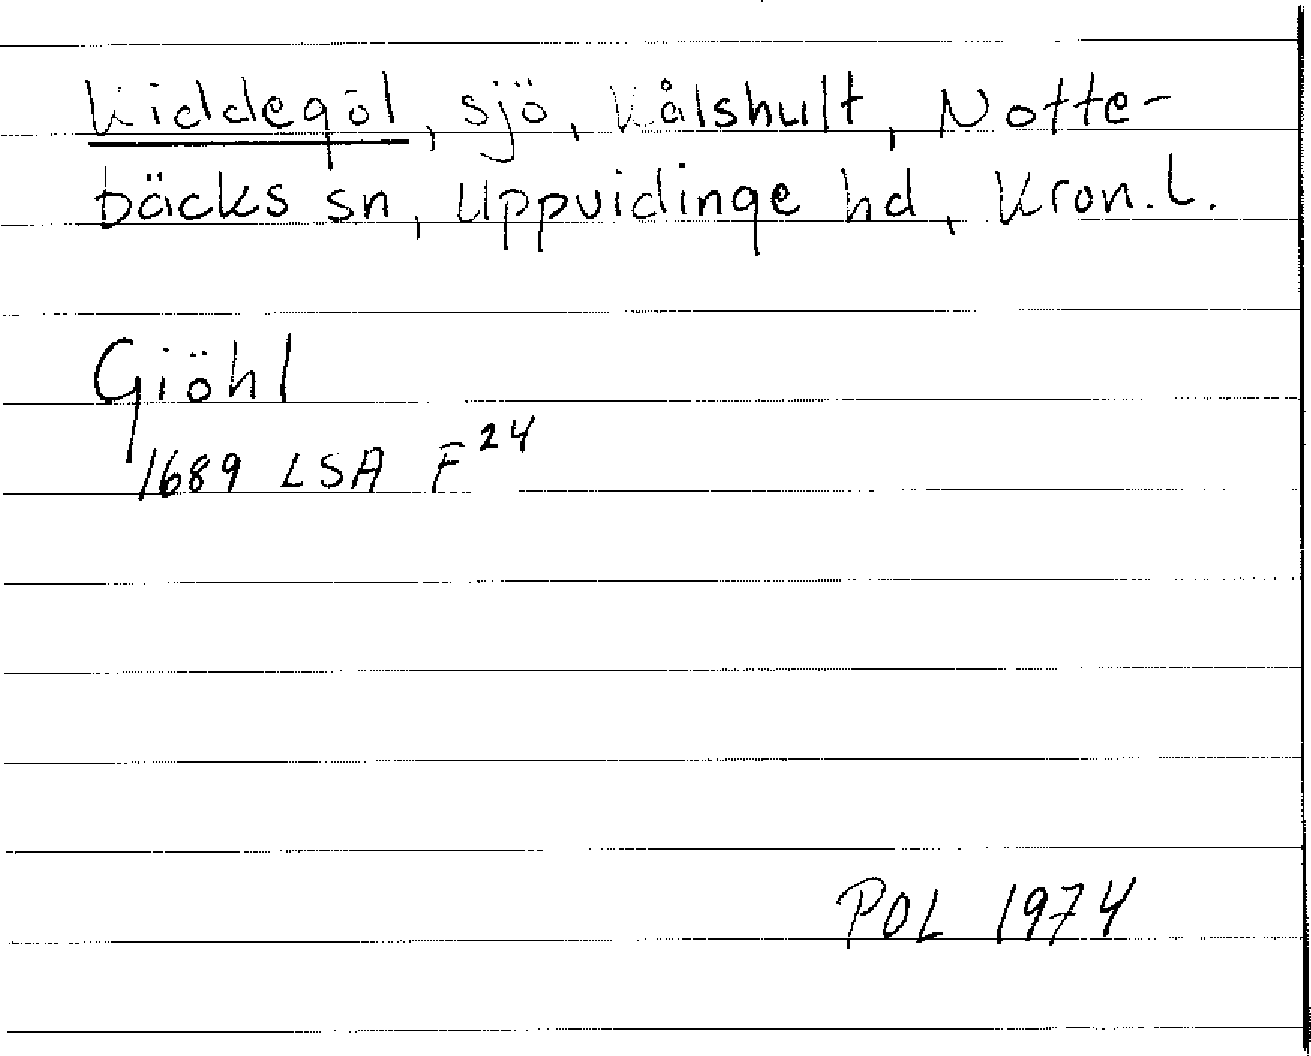 Kiddegöl, sjö, Kålshult, Notte-
bäcks sn, Uppvidinge hd, Kron.L.
Giöhl
1689 LSA F24
POL 1974